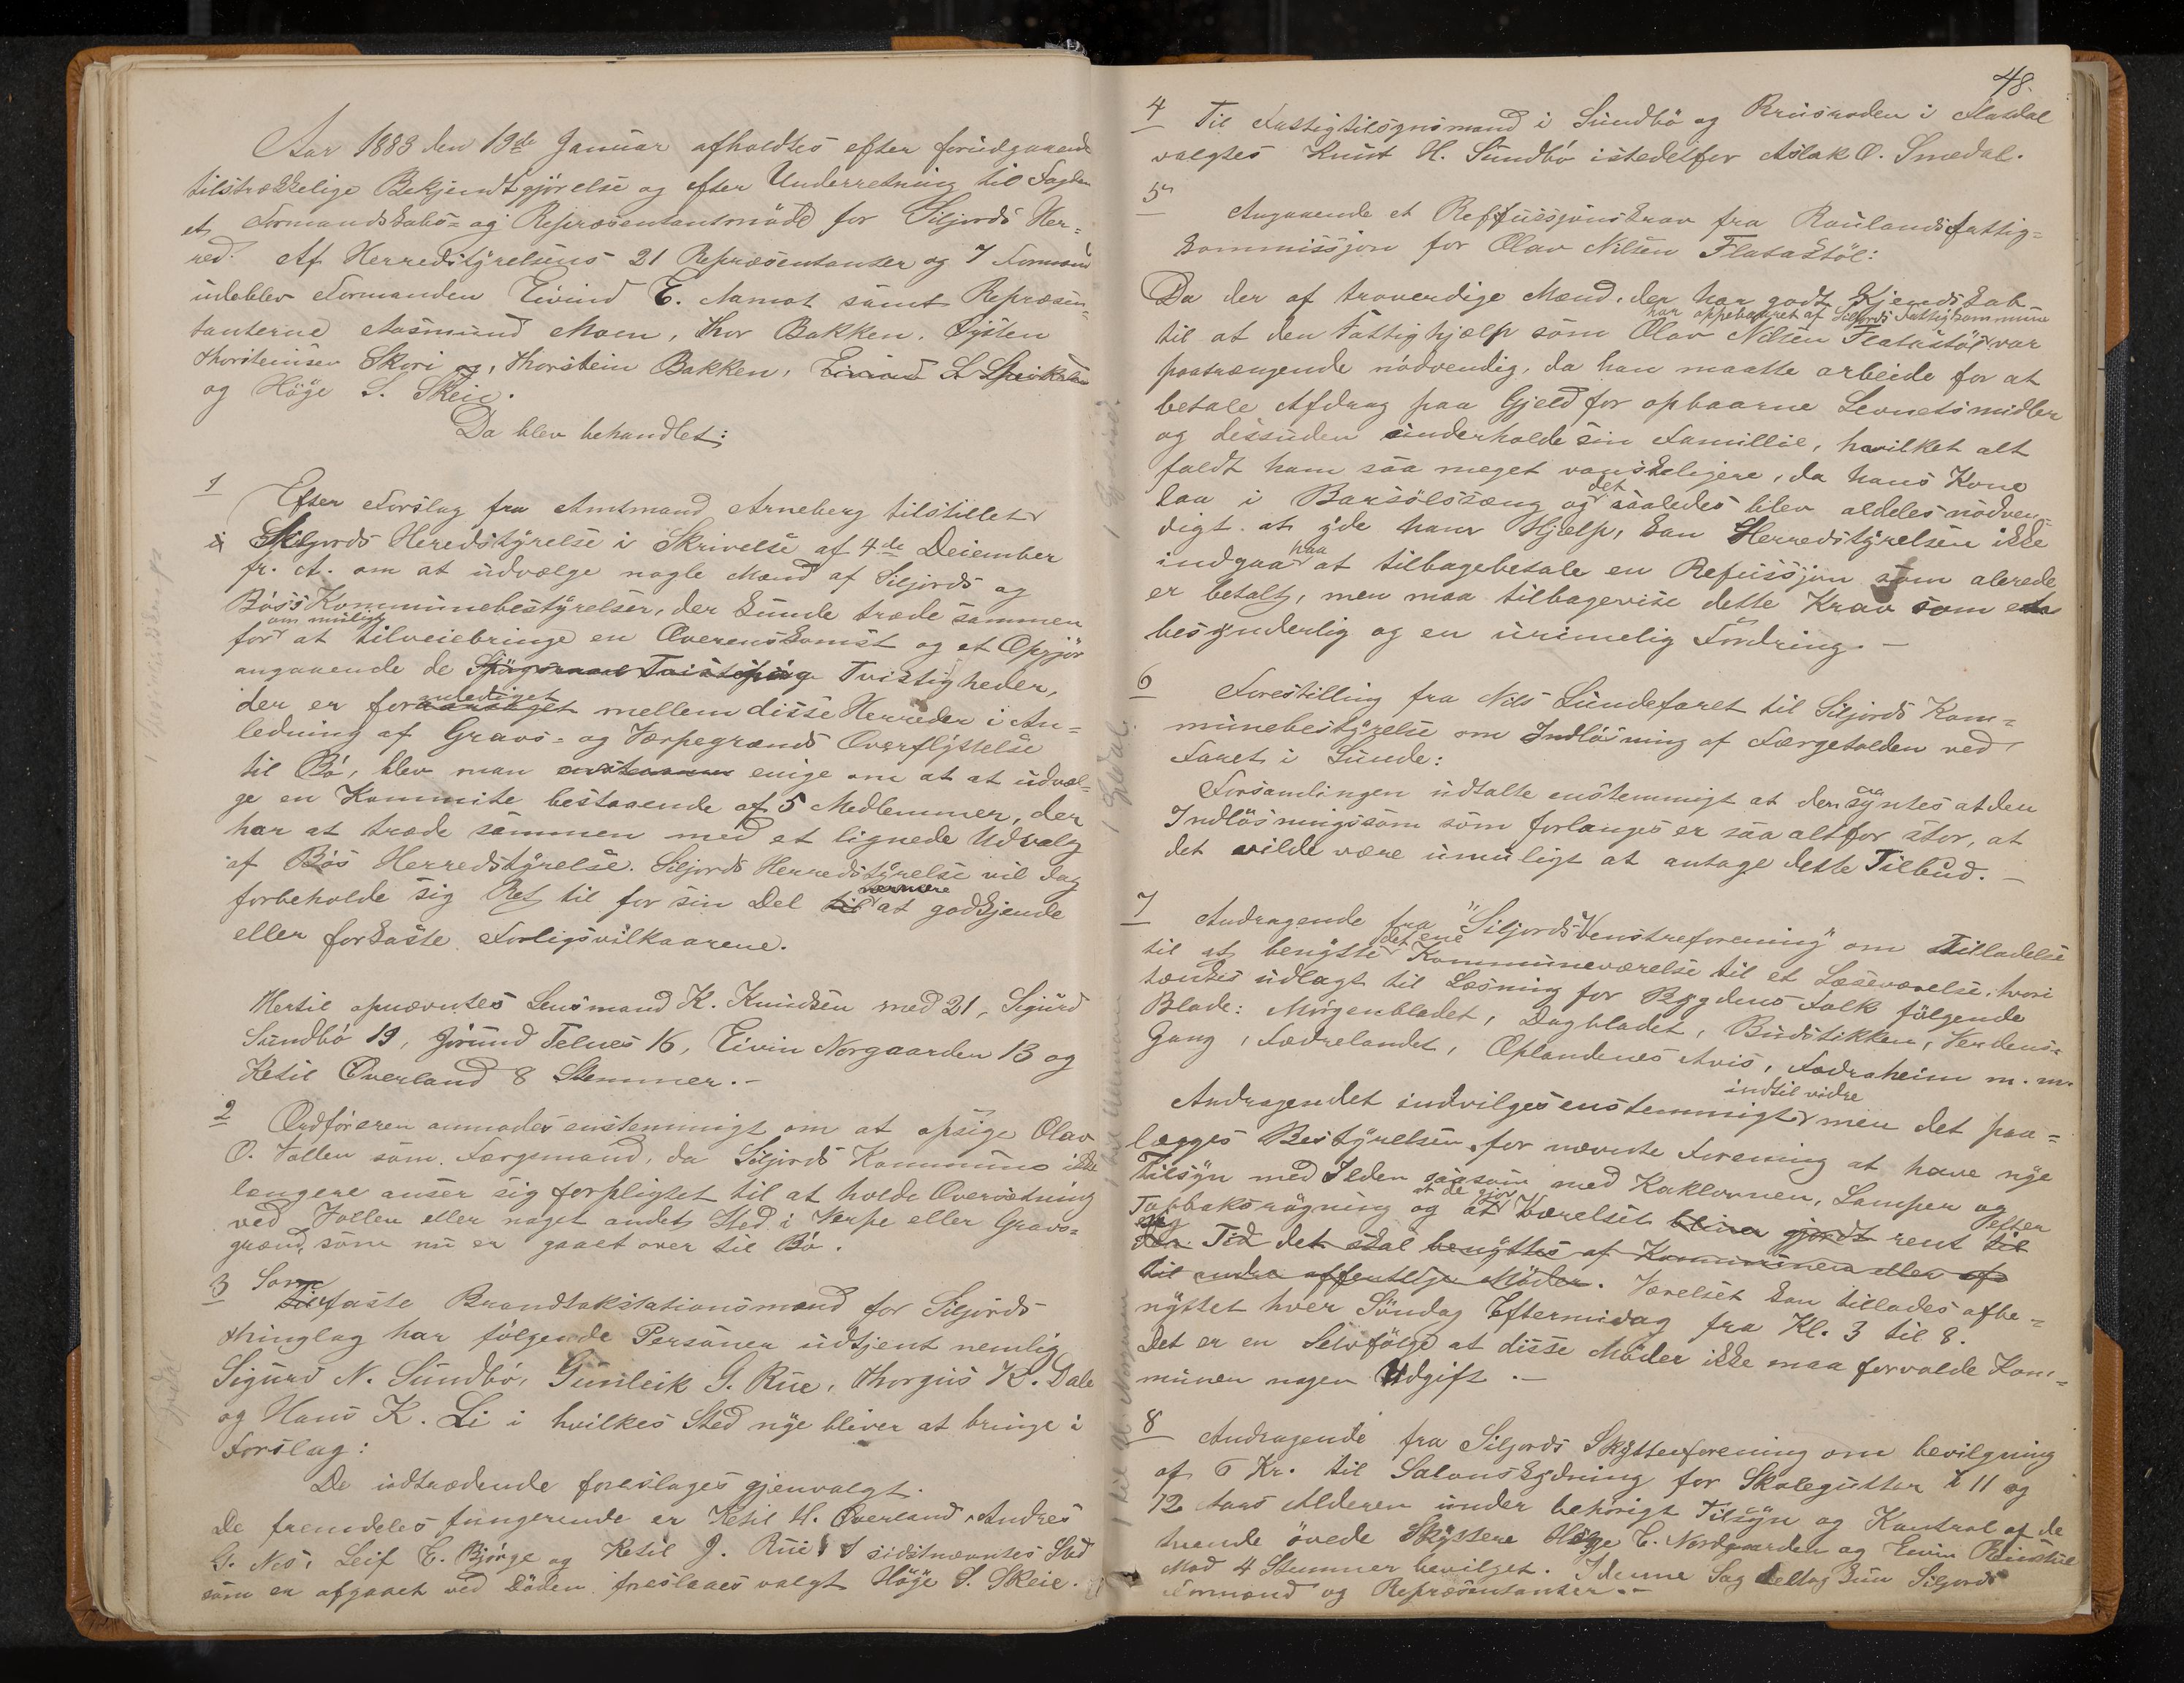 Aar 1883 den 19de Januar afholdtes efter forudgaaende
tilstrækkelige Bekjendtgjørelse og efter Underretning til Fogden
et Formandskabs- og Repræsentantmøde for Siljords Her=
red. Af Herredstyrelsens 21 Repræsentanter og 7 Formænd
udeblev Formanden Eivind E. Aamot samt Repræsen=
tanterne Aasmund Moen, Thor Bakken, Øysten
Thorstensen Skori og, Thorstein Bakken, Eivind S
og Høge S. Skeie.
Da blev behandlet:
1
Efter Forslag fra Amtmand Arneberg tilstillet
i Siljords Heredstyrelse i Skrivelse af 4de Deiember
fr. A. om at udvælge nogle Mænd af Siljords og
Bøs's Kommunebestyrelser, der kunde træde sammen
om muligt
for at tilveiebringe en Overenskomst og et Opgjør
angaaende de Spørgsmaal Tvistspørg Tvistigheder,
anlediget
der er foraarsaget mellem disse Herreder i An=
ledning af Gravs= og Værpegrænds Overflyttelse
til Bø, blev man enstemme enige om at at udvæl=
ge en Kommite bestaaende af 5 Medlemmer, der
har at træde sammen med et lignede Udvalg
af Bøs Herredstyrelse. Siljords Herredstyrelse vil dog
nærmere
forbeholde sig Ret til for sin Del til at godkjende
eller forkaste Forligsvilkaarene.
Hertil opnævntes Lensmand K. Knudsen med 21, Sigurd
Sundbø 19, Jørund Telnes 16, Eivin Norgaarden 13 og
Ketil Øverland 8 Stemmer.-
2
Ordføreren anmodes enstemmigt om at opsige Olav
O. Vollen som Færgemand, da Siljords Kommune ikke
længere anser sig forpligtet til at holde Oversætning
ved Vollen eller noget andet Sted i Verpe eller Gravs=
grænd, som nu er gaaet over til Bø.
3 Som
til faste Brandtakstationsmænd for Siljords
Thinglag har følgende Personer udtjent nemlig
Sigurd N. Sundbø, Gunleik G. Rue, Thorgus K. Dale
og Hans K. Li i hvilkes Sted nye bliver at bringe i
Forslag:
De udtrædende foreslages gjenvalgt.
De fremdeles fungerende er Ketil H. Øverland, Andres
G. Nes, Leif E. Bjørge og Ketil J. Rue. I sidstnævntes Sted
som er afgaaet ved Døden foreslaaes valgt Høge S. Skeie.
48.
4
Til Fattigtilsynsmand i Sundbø og Rrisroden i Flatdal
valgtes Knut H. Sundbø istedetfor Aslak O. Smedal.
5
Angaaende et Reffussjonskrav fra Raulands Fattig=
kommissjon for Olav Nilsen Flatastøl:
Da der af troverdige Mænd, der har godt Kjendskab
har oppebaaret af Siljords Fattigkommune
til at den Fattighjælp som Olav Nilsen Flatastøl var
paatrængende nødvendig, da han maatte arbeide for at
betale Afdrag paa Gjeld for opbaarne Levnetsmidler
og dessuden underholde sin Famillie, hvilket alt
faldt ham saa meget vanskeligere, da hans Kone
det
laa i Barsølssæng og saaledes blev aldeles nødven=
digt at yde ham Hjælp, kan Herredstyrelsen ikke
paa
indgaa at tilbagebetale en Refussjon som alerede
er betalt, men maa tilbagevise dette Krav som et
besynderlig og en urimelig Fordring. -
6
Forestilling fra Nils Sundefaret til Siljords Kom=
munebestyrelse om Indløsning af Færgetolden ved
Faret i Sunde:
Forsamlingen udtalte enstemmigt at den syntes at den
Indløsningssom som forlanges er saa altfor stor, at
det vilde være umuligt at antage dette Tilbud. -
7
Andragende fra "Siljords Venstreforening" om Tilladelse
det ene
til at benytte Kommuneværelse til et Læseværelse, hvori
tænkes udlagt til Læsning for Bygdens Folk følgende
Blade: Morgenbladet, Dagbladet, Budstikken, Verdens=
Gang, Fædrelandet, Oplandenes Avis, Fedraheim m. m.
indtil vidre
Andragendet indvilges enstemmigt men det paa=
lægges Bestyrelsen for nævnte Forening at have nøie
Tilsyn med Ilden saasom med Kaklovnen, Lamper og
at de gjør
Tobbaksrøgning og at Værelset bliver gjordt rent til efter
sig
den Tid det skal benyttes af Kommunen eller af
til andre offentlige Møder. Værelset kan tillades afbe=
nyttet hver Søndag Eftermidag fra Kl. 3 til 8.
Det er en Selvfølge at disse Møder ikke maa forvolde Kom=
munen nogen Udgift. -
8
Andragende fra Siljords Skytterforening om bevilgning
af 6 Kr. til Salonskydning for Skolegutter i 11 og
12 Aars Alderen under behørigt Tilsyn og Kontrol af de
tvende øvede Skyttere Helge E. Nordgaarden og Eivin
Mod 4 Stemmer bevilget. I denne Sag deltog kun Siljords
Formænd og Repræsentanter. -